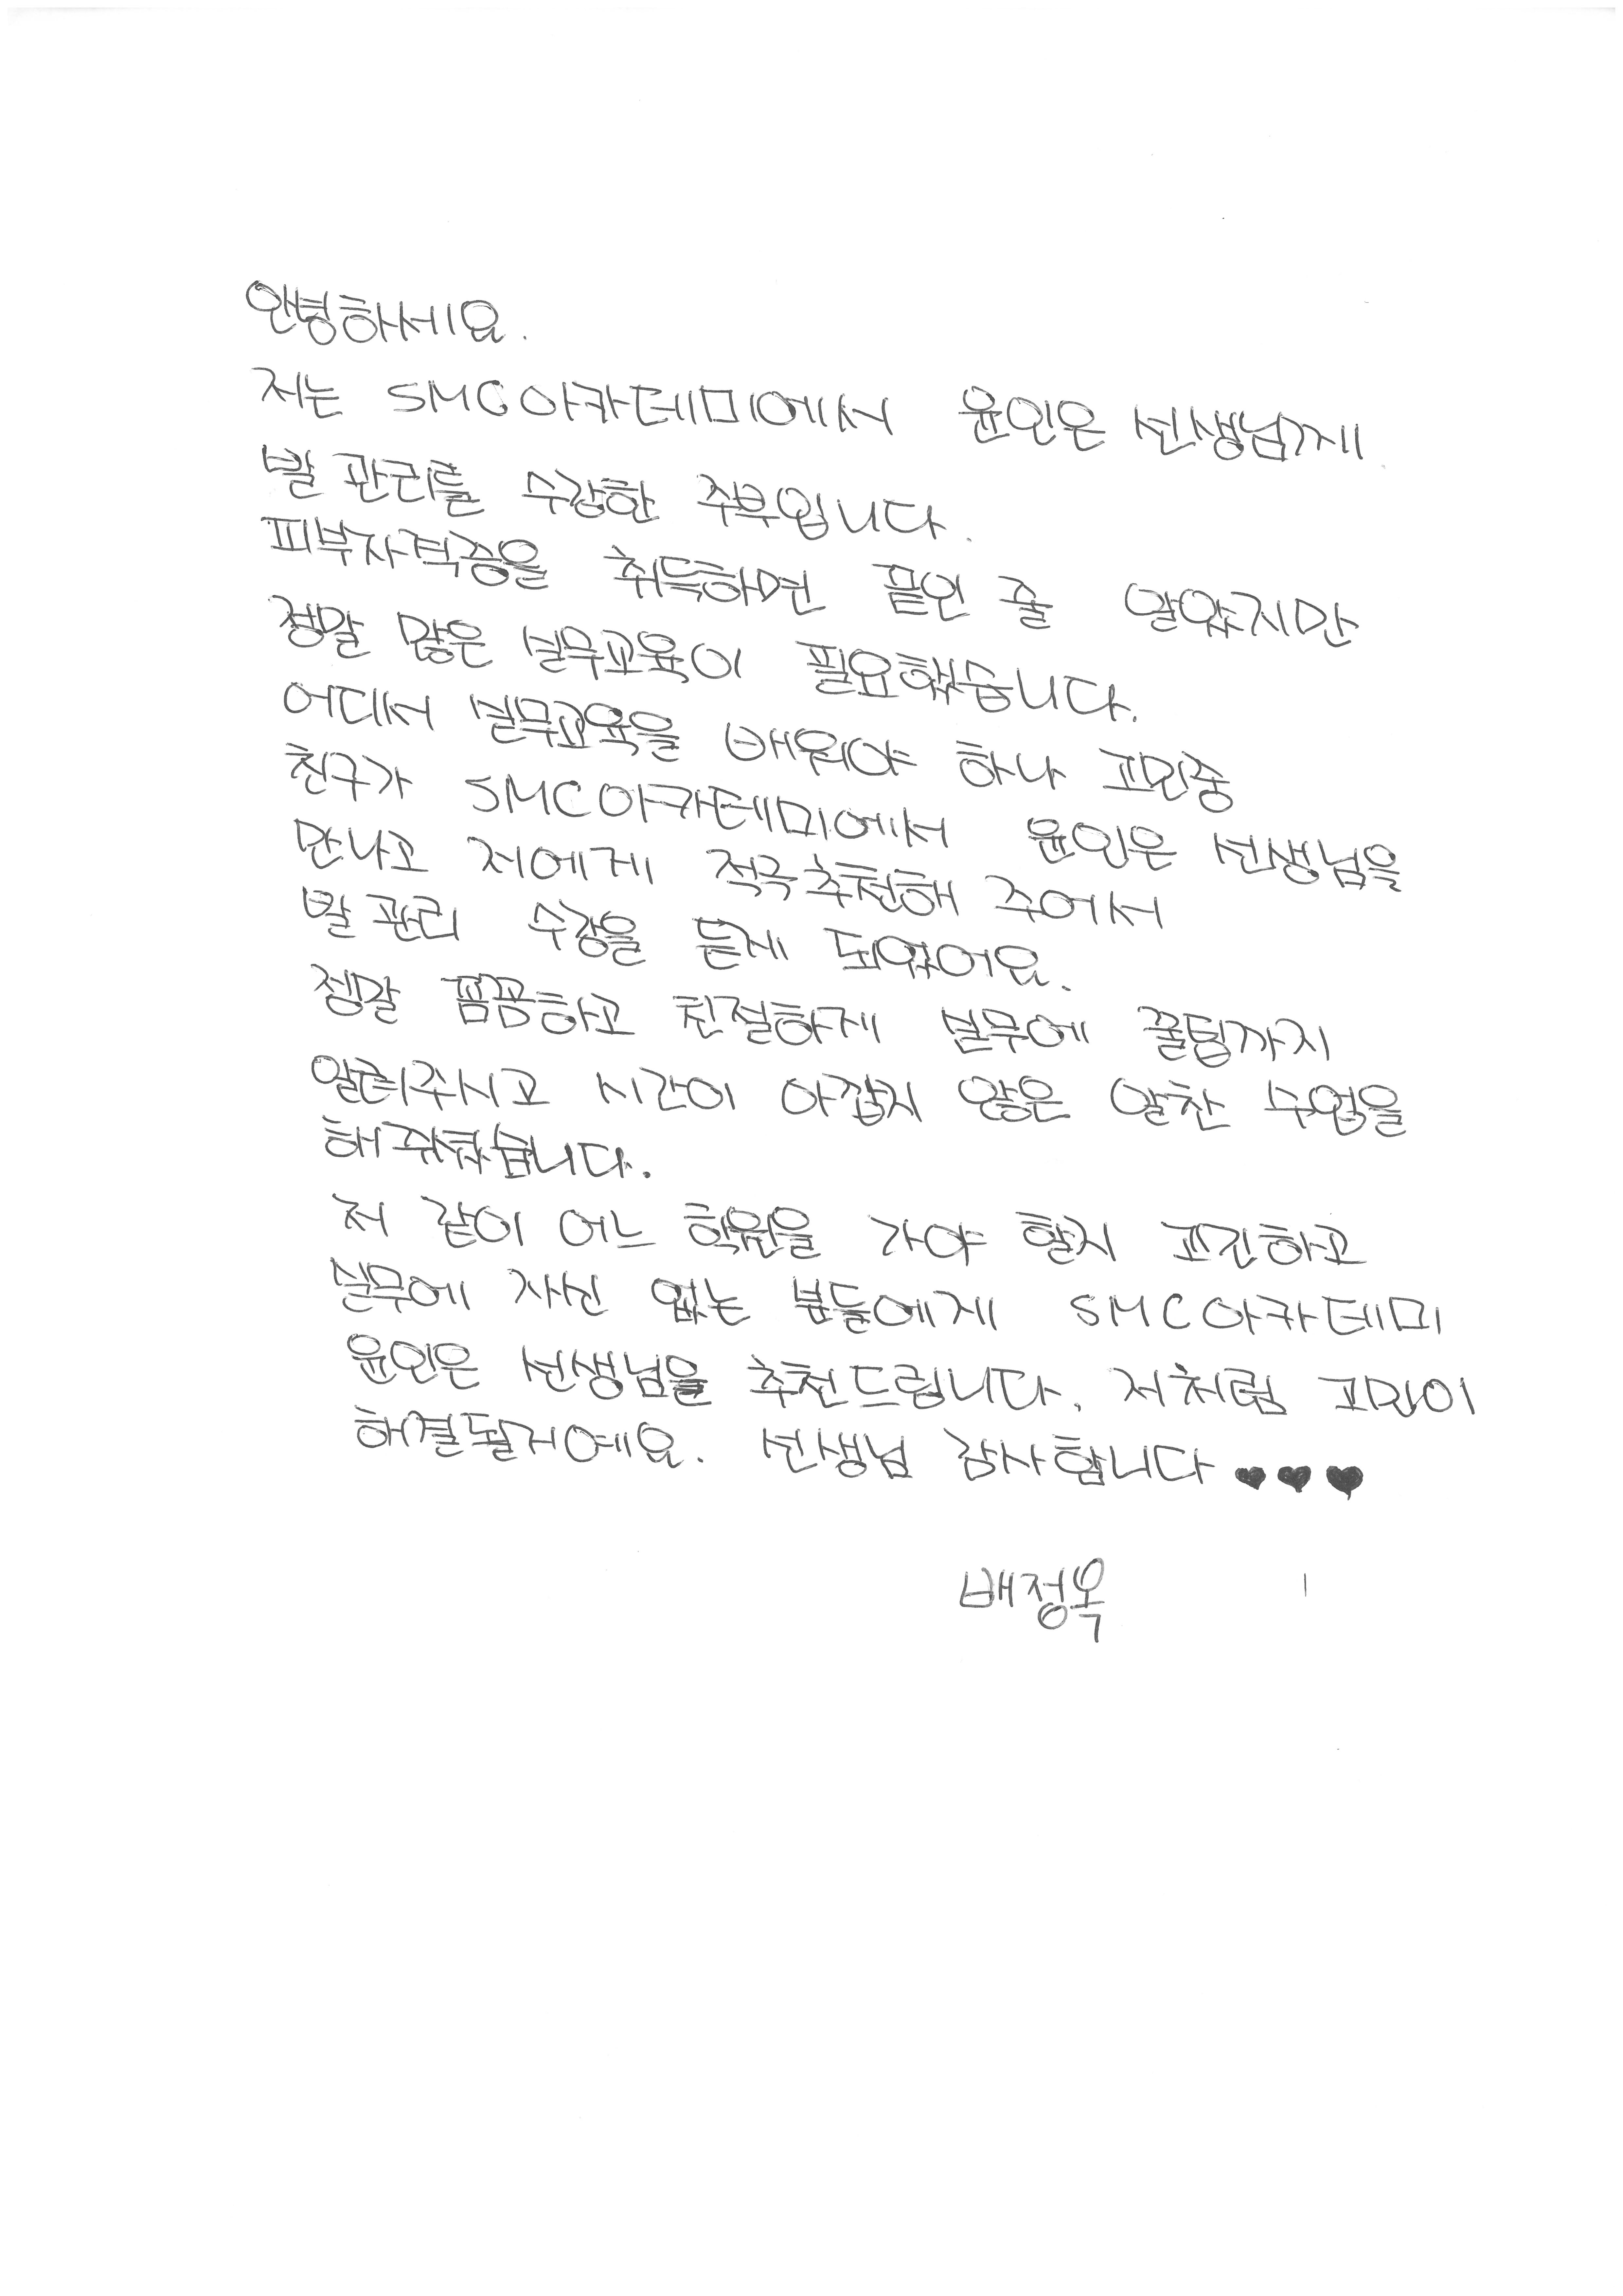 안녕하세요.
저는 SMC아카데미에서 윤인은 선생님께
발 관리를 수강한 주부입니다.
피부자격증을 취득하면 끝인 줄 알았지만
정말 많은 실무교육이 필요했습니다.
어디서 실무교육을 배워야 하나 고민중
친구가 SMC아카데미에서 윤인은 선생님을
만나고 저에게 적극추천해 주어서
발 관리 수강을 듣게 되었어요.
정말 꼼꼼하고 친절하게 실무에 꿀팁까지
알려주시고 시간이 아깝지 않은 알찬 수업을
해주셨습니다.
저 같이 어느 학원을 가야 할지 고민하고
실무에 자신 없는 분들에게 SMC아카데미
윤인은 선생님을 추천드립니다. 저처럼 고민이
해결될거예요. 선생님 감사합니다 ♥♥♥
배정옥